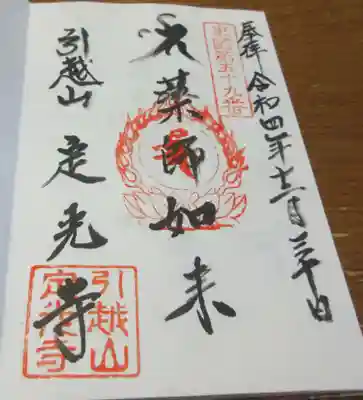 奉拝 令和四年十二月三十日
第五十九番
薬師如来
引越山 定光寺
引越山
定光寺